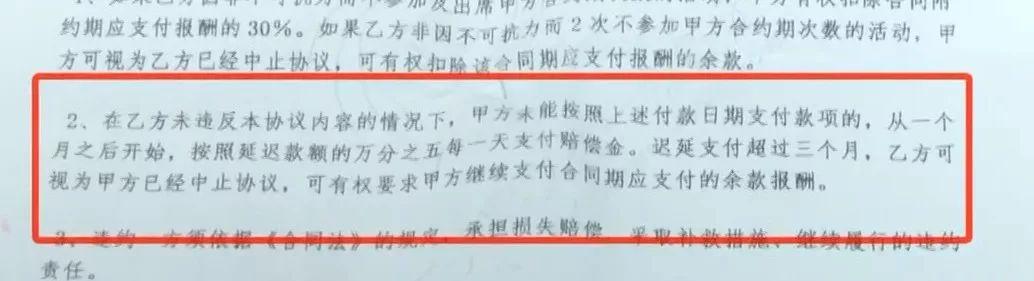 1、如果乙方因非不可抗力而不参加及出席甲方
约期应支付报酬的30%。如果乙方非因不可抗力而2次不参加甲方合约期次数的活动，甲
方可视为乙方已经中止协议，可有权扣除该合同期应支付报酬的余款。
2、在乙方未违反本协议内容的情况下，甲方未能按照上述付款日期支付款项的，从一个
月之后开始，按照延迟款额的万分之五每一天支付赔偿金。迟延支付超过三个月，乙方可
视为甲方已经中止协议，可有权要求甲方继续支付合同期应支付的余款报酬。
3、违约一方须依据《合同法》的规定，承担损失赔偿、采取补救措施、继续履行的违约
责任。